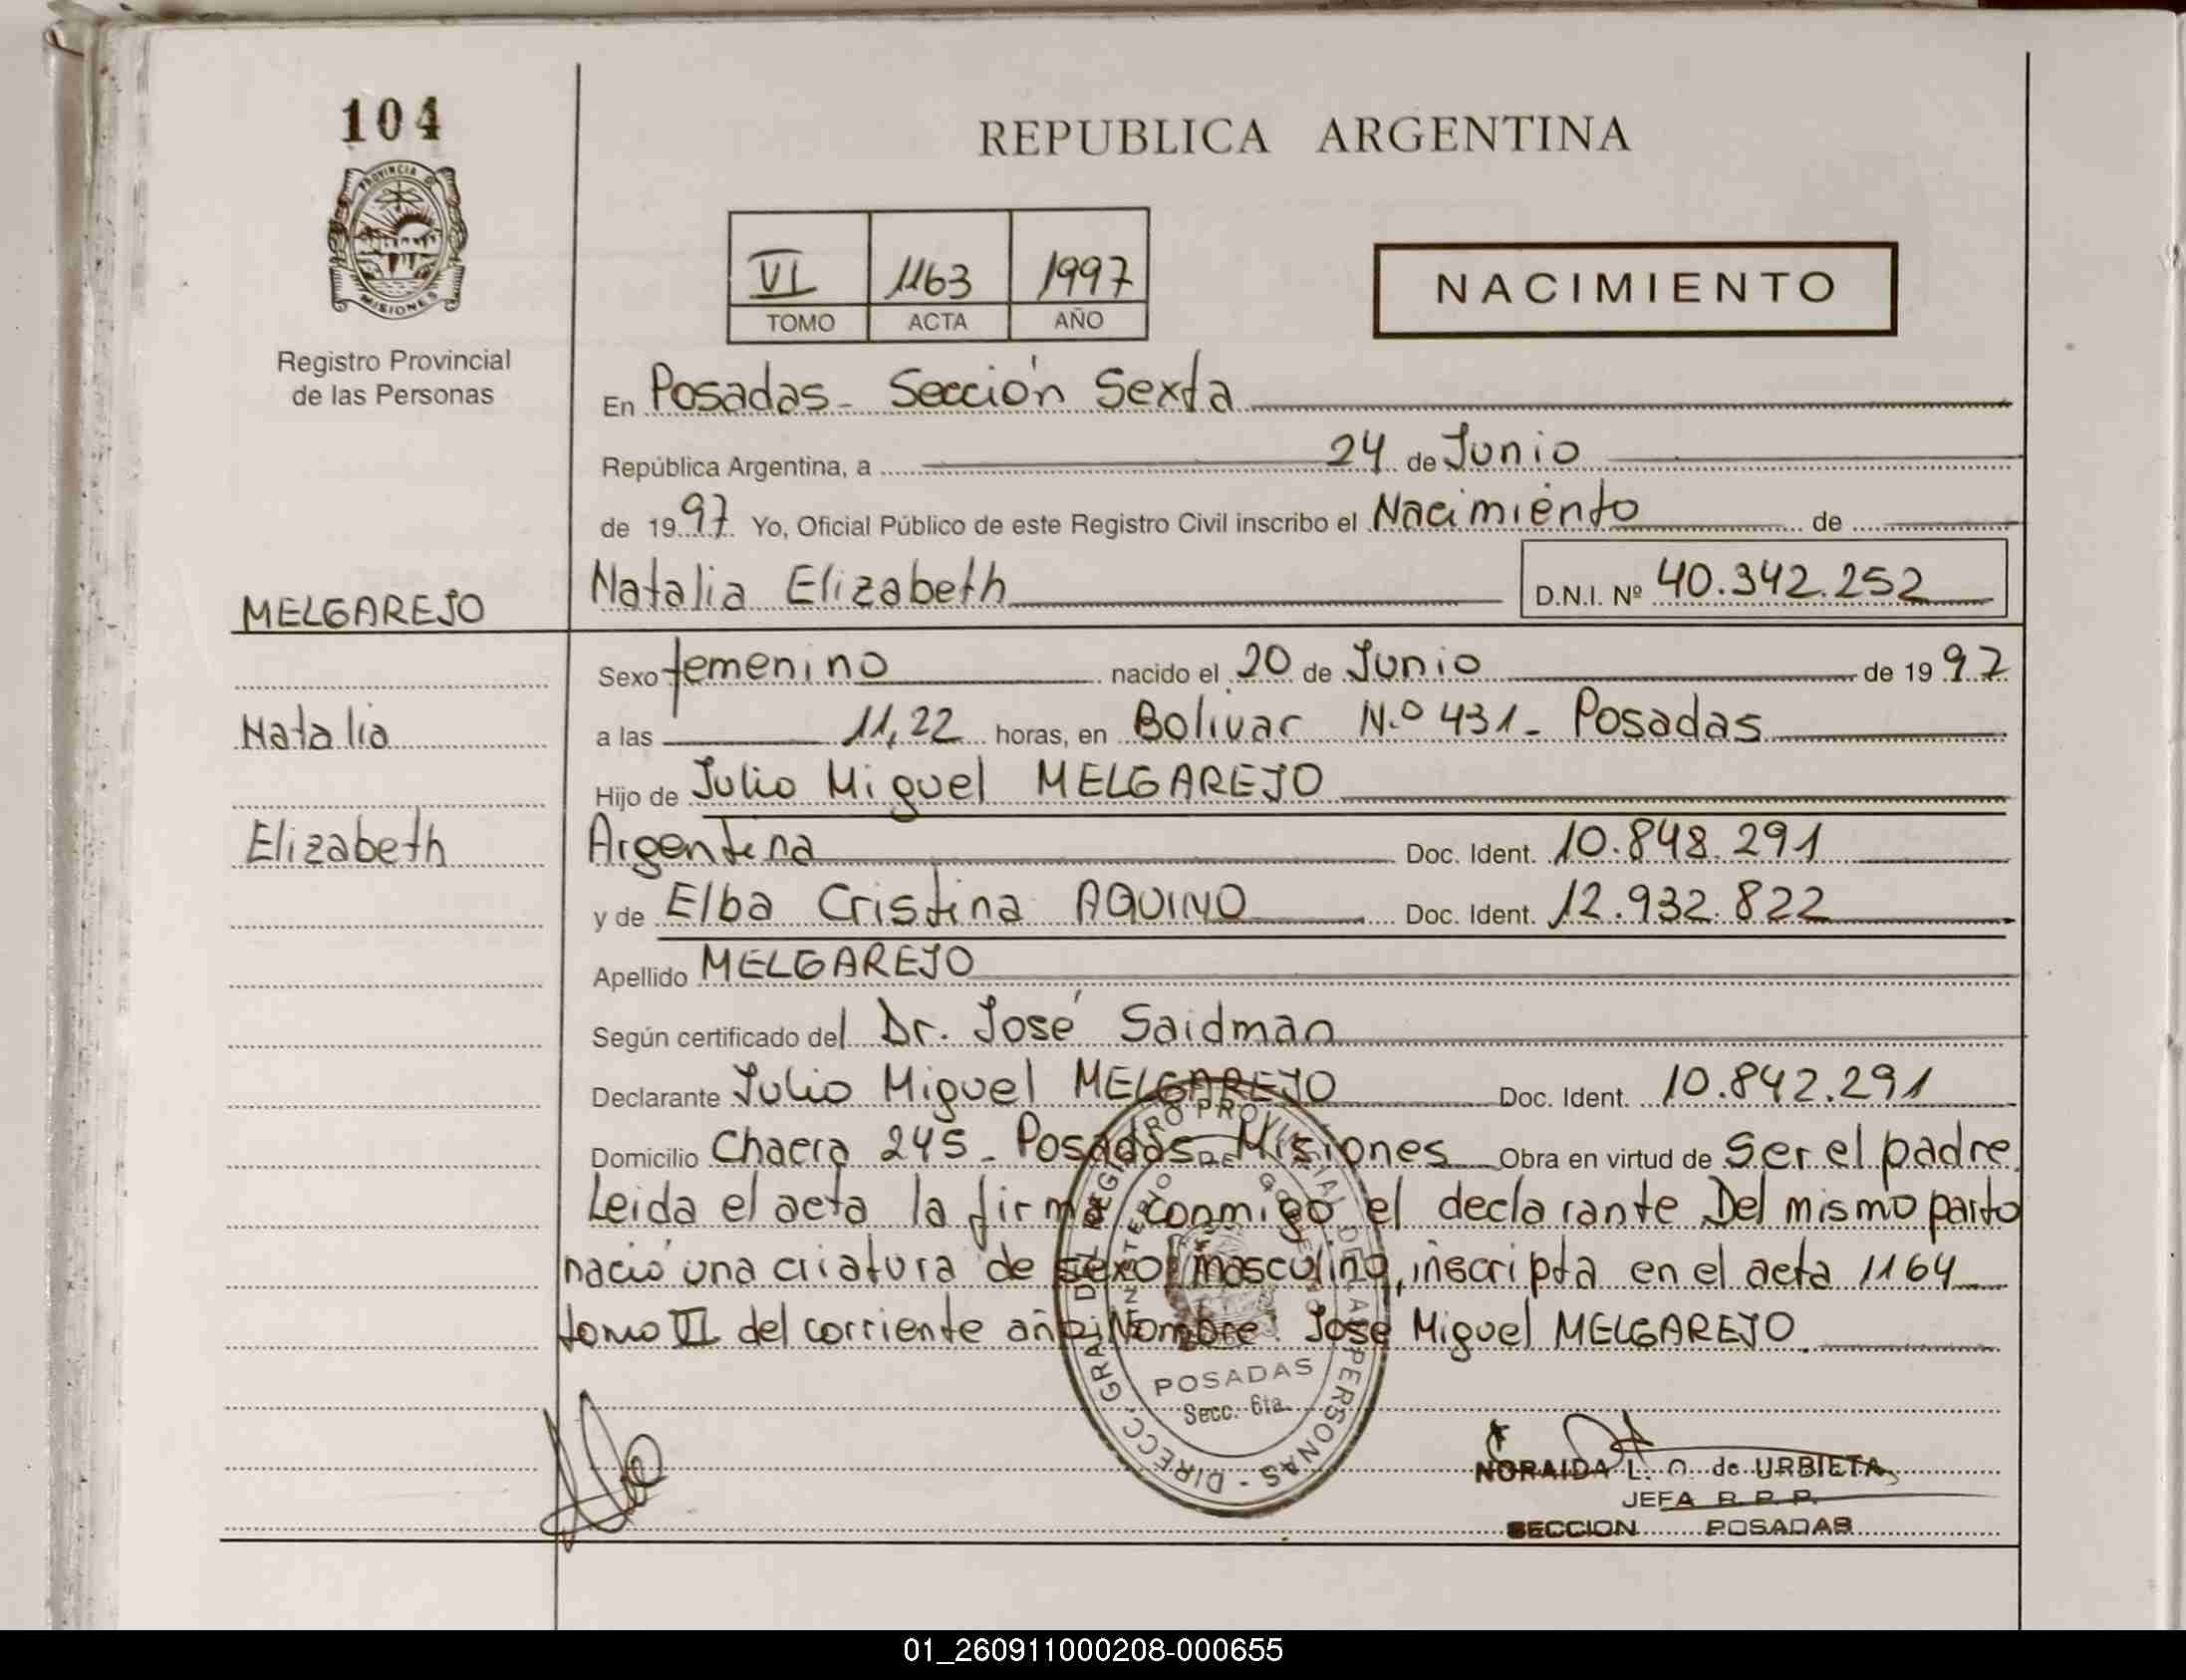 104
REPUBLICA ARGENTINA
PROVINCIA D
MISIONES
Registro Provincial
de las Personas
VI 1163 1997
TOMO ACTA AÑO
NACIMIENTO
En Posadas - Sección Sexta
República Argentina, a 24 de Junio
de 1997 Yo, Oficial Público de este Registro Civil inscribo el Nacimiento de
MELGAREJO
Natalia Elizabeth D.N.I. Nº 40.342.252
Sexo femenino nacido el 20 de Junio de 1997
Natalia
a las 11,22 horas, en Bolivar N.º 431 - Posadas
Hijo de Julio Miguel MELGAREJO
Elizabeth
Argentina Doc. Ident. 10.848.291
y de Elba Cristina AQUINO Doc. Ident. 12.932.822
Apellido MELGAREJO
Según certificado del Dr. José Saidman
Declarante Julio Miguel MELGAREJO Doc. Ident. 10.842.291
Domicilio Chacra 245 - Posadas - Misiones Obra en virtud de Ser el padre.
Leida el acta la firma conmigo el declarante Del mismo parto
nació una criatura de sexo masculino, inscripta en el acta 1164
tomo VI del corriente año; Nombre: José Miguel MELGAREJO.
DIRECC. GRAL. DEL REGISTRO PROVINCIAL DE LAS PERSONAS -
POSADAS
Secc. 6ta.
NORAIDA L. O. de URBIETA
JEFA R. P. P.
SECCION POSADAS
01_260911000208-000655